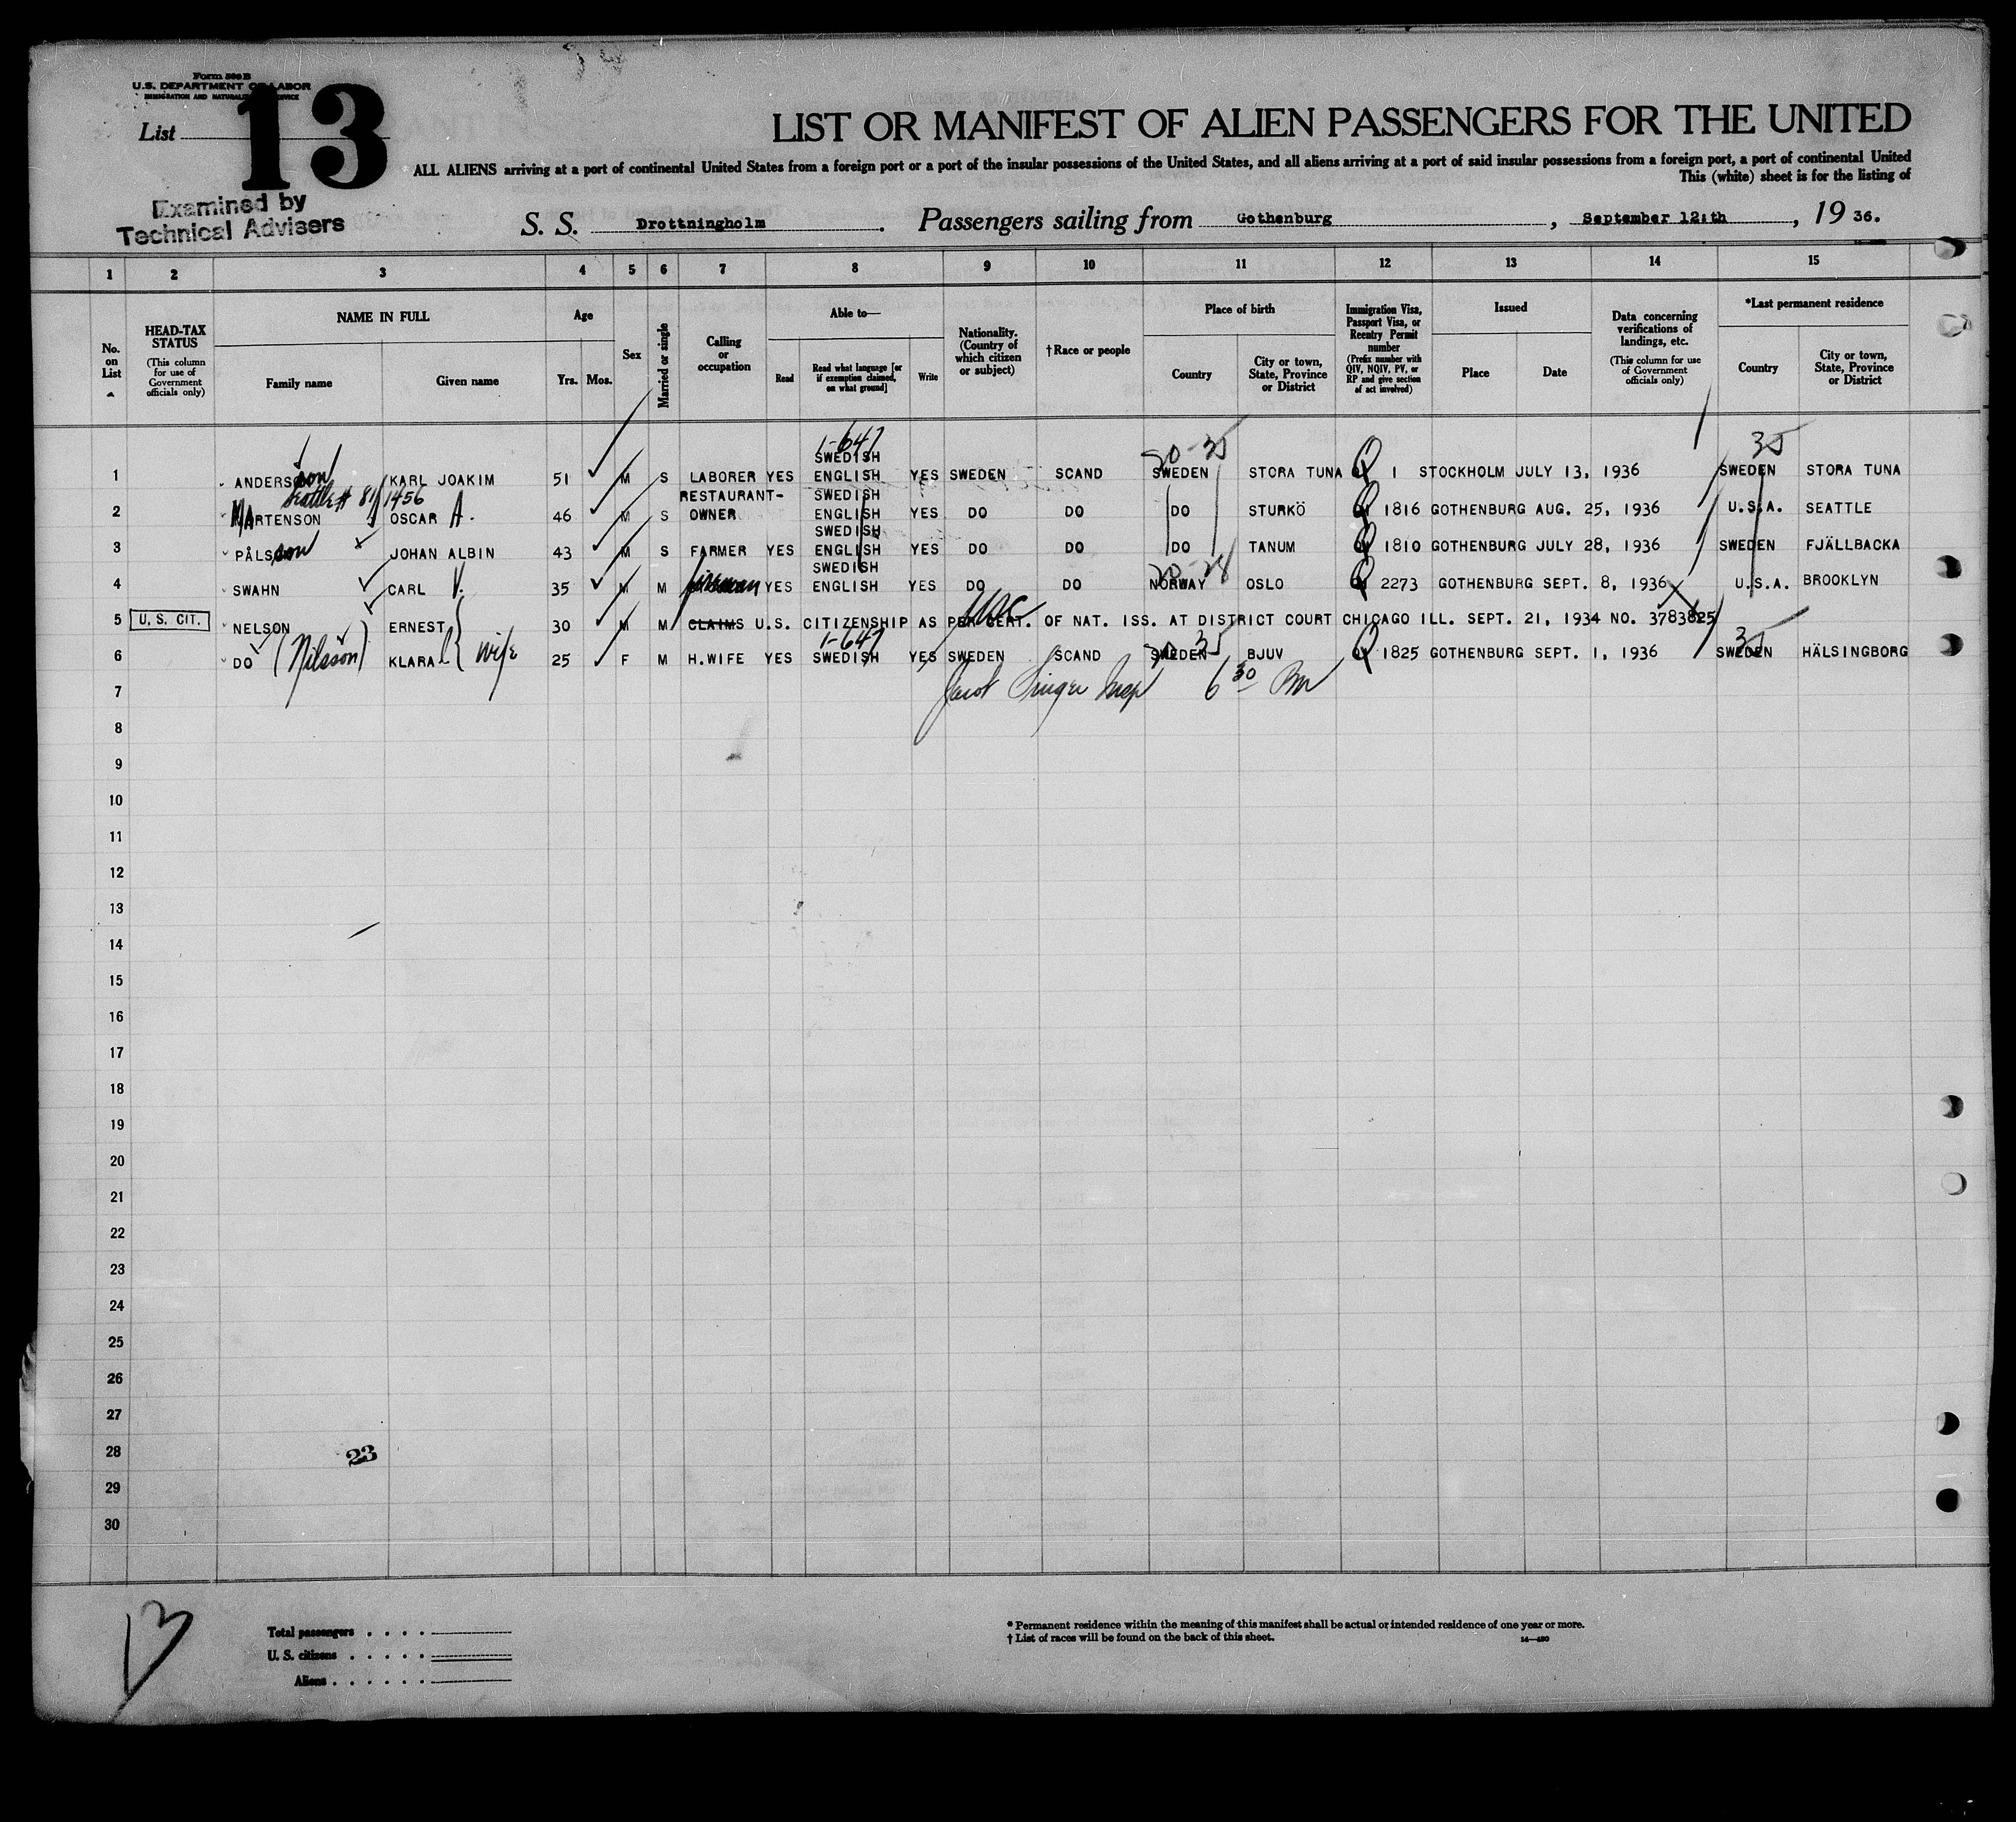 Form 500 B
U.S. DEPARTMENT OF LABOR
IMMIGRATION AND NATURALIZATION SERVICE
List 13
Examined by
Technical Advisers
LIST OR MANIFEST OF ALIEN PASSENGERS FOR THE UNITED
ALL ALIENS arriving at a port of continental United States from a foreign port or a port of the insular possessions of the United States, and all aliens arriving at a port of said insular possessions from a foreign port, a port of continental United
This (white) sheet is for the listing of
S. S. Drottningholm. Passengers sailing from Gothenburg, September 12:th, 19 36.
1 2 3 4 5 6 7 8 9 10 11 12 13 14 15
No. on List
HEAD-TAX STATUS (This column for use of Government officials only)
NAME IN FULL
Family name Given name
Age
Yrs. Mos.
Sex
Married or single
Calling or occupation
Able to—
Read Read what language [or if exemption claimed, on what ground] Write
Nationality. (Country of which citizen or subject)
†Race or people
Place of birth
Country City or town, State, Province or District
Immigration Visa, Passport Visa, or Reentry Permit number (Prefix number with QIV, NQIV, PV, or RP and give section of act involved)
Issued
Place Date
Data concerning verifications of landings, etc. (This column for use of Government officials only)
*Last permanent residence
Country City or town, State, Province or District
1-647 20-35 35
1 ANDERSson KARL JOAKIM 51 M S LABORER YES SWEDISH ENGLISH YES SWEDEN SCAND SWEDEN STORA TUNA Q 1 STOCKHOLM JULY 13, 1936 SWEDEN STORA TUNA
Seattle # 811/1456
2 MARTENSON OSCAR A. 46 M S RESTAURANT-OWNER SWEDISH ENGLISH YES DO DO DO STURKÖ 1816 GOTHENBURG AUG. 25, 1936 U.S.A. SEATTLE
3 PÅLSson JOHAN ALBIN 43 M S FARMER YES SWEDISH ENGLISH YES DO DO DO TANUM 1810 GOTHENBURG JULY 28, 1936 SWEDEN FJÄLLBACKA
20-28
4 SWAHN CARL V. 35 M M YES SWEDISH ENGLISH YES DO DO NORWAY OSLO 2273 GOTHENBURG SEPT. 8, 1936 U.S.A. BROOKLYN
USC
5 U. S. CIT. NELSON ERNEST 30 M M CLAIMS U.S. CITIZENSHIP AS PER CERT. OF NAT. ISS. AT DISTRICT COURT CHICAGO ILL. SEPT. 21, 1934 NO. 3783825
1-647 20 35 35
6 DO (Nilsson) KLARA wife 25 F M H.WIFE YES SWEDISH YES SWEDEN SCAND SWEDEN BJUV 1825 GOTHENBURG SEPT. 1, 1936 SWEDEN HÄLSINGBORG
7 Singer Insp 6 30 PM
8
9
10
11
12
13
14
15
16
17
18
19
20
21
22
23
24
25
26
27
28 23
29
30
13
Total passengers
U. S. citizens
Aliens
* Permanent residence within the meaning of this manifest shall be actual or intended residence of one year or more.
† List of races will be found on the back of this sheet.